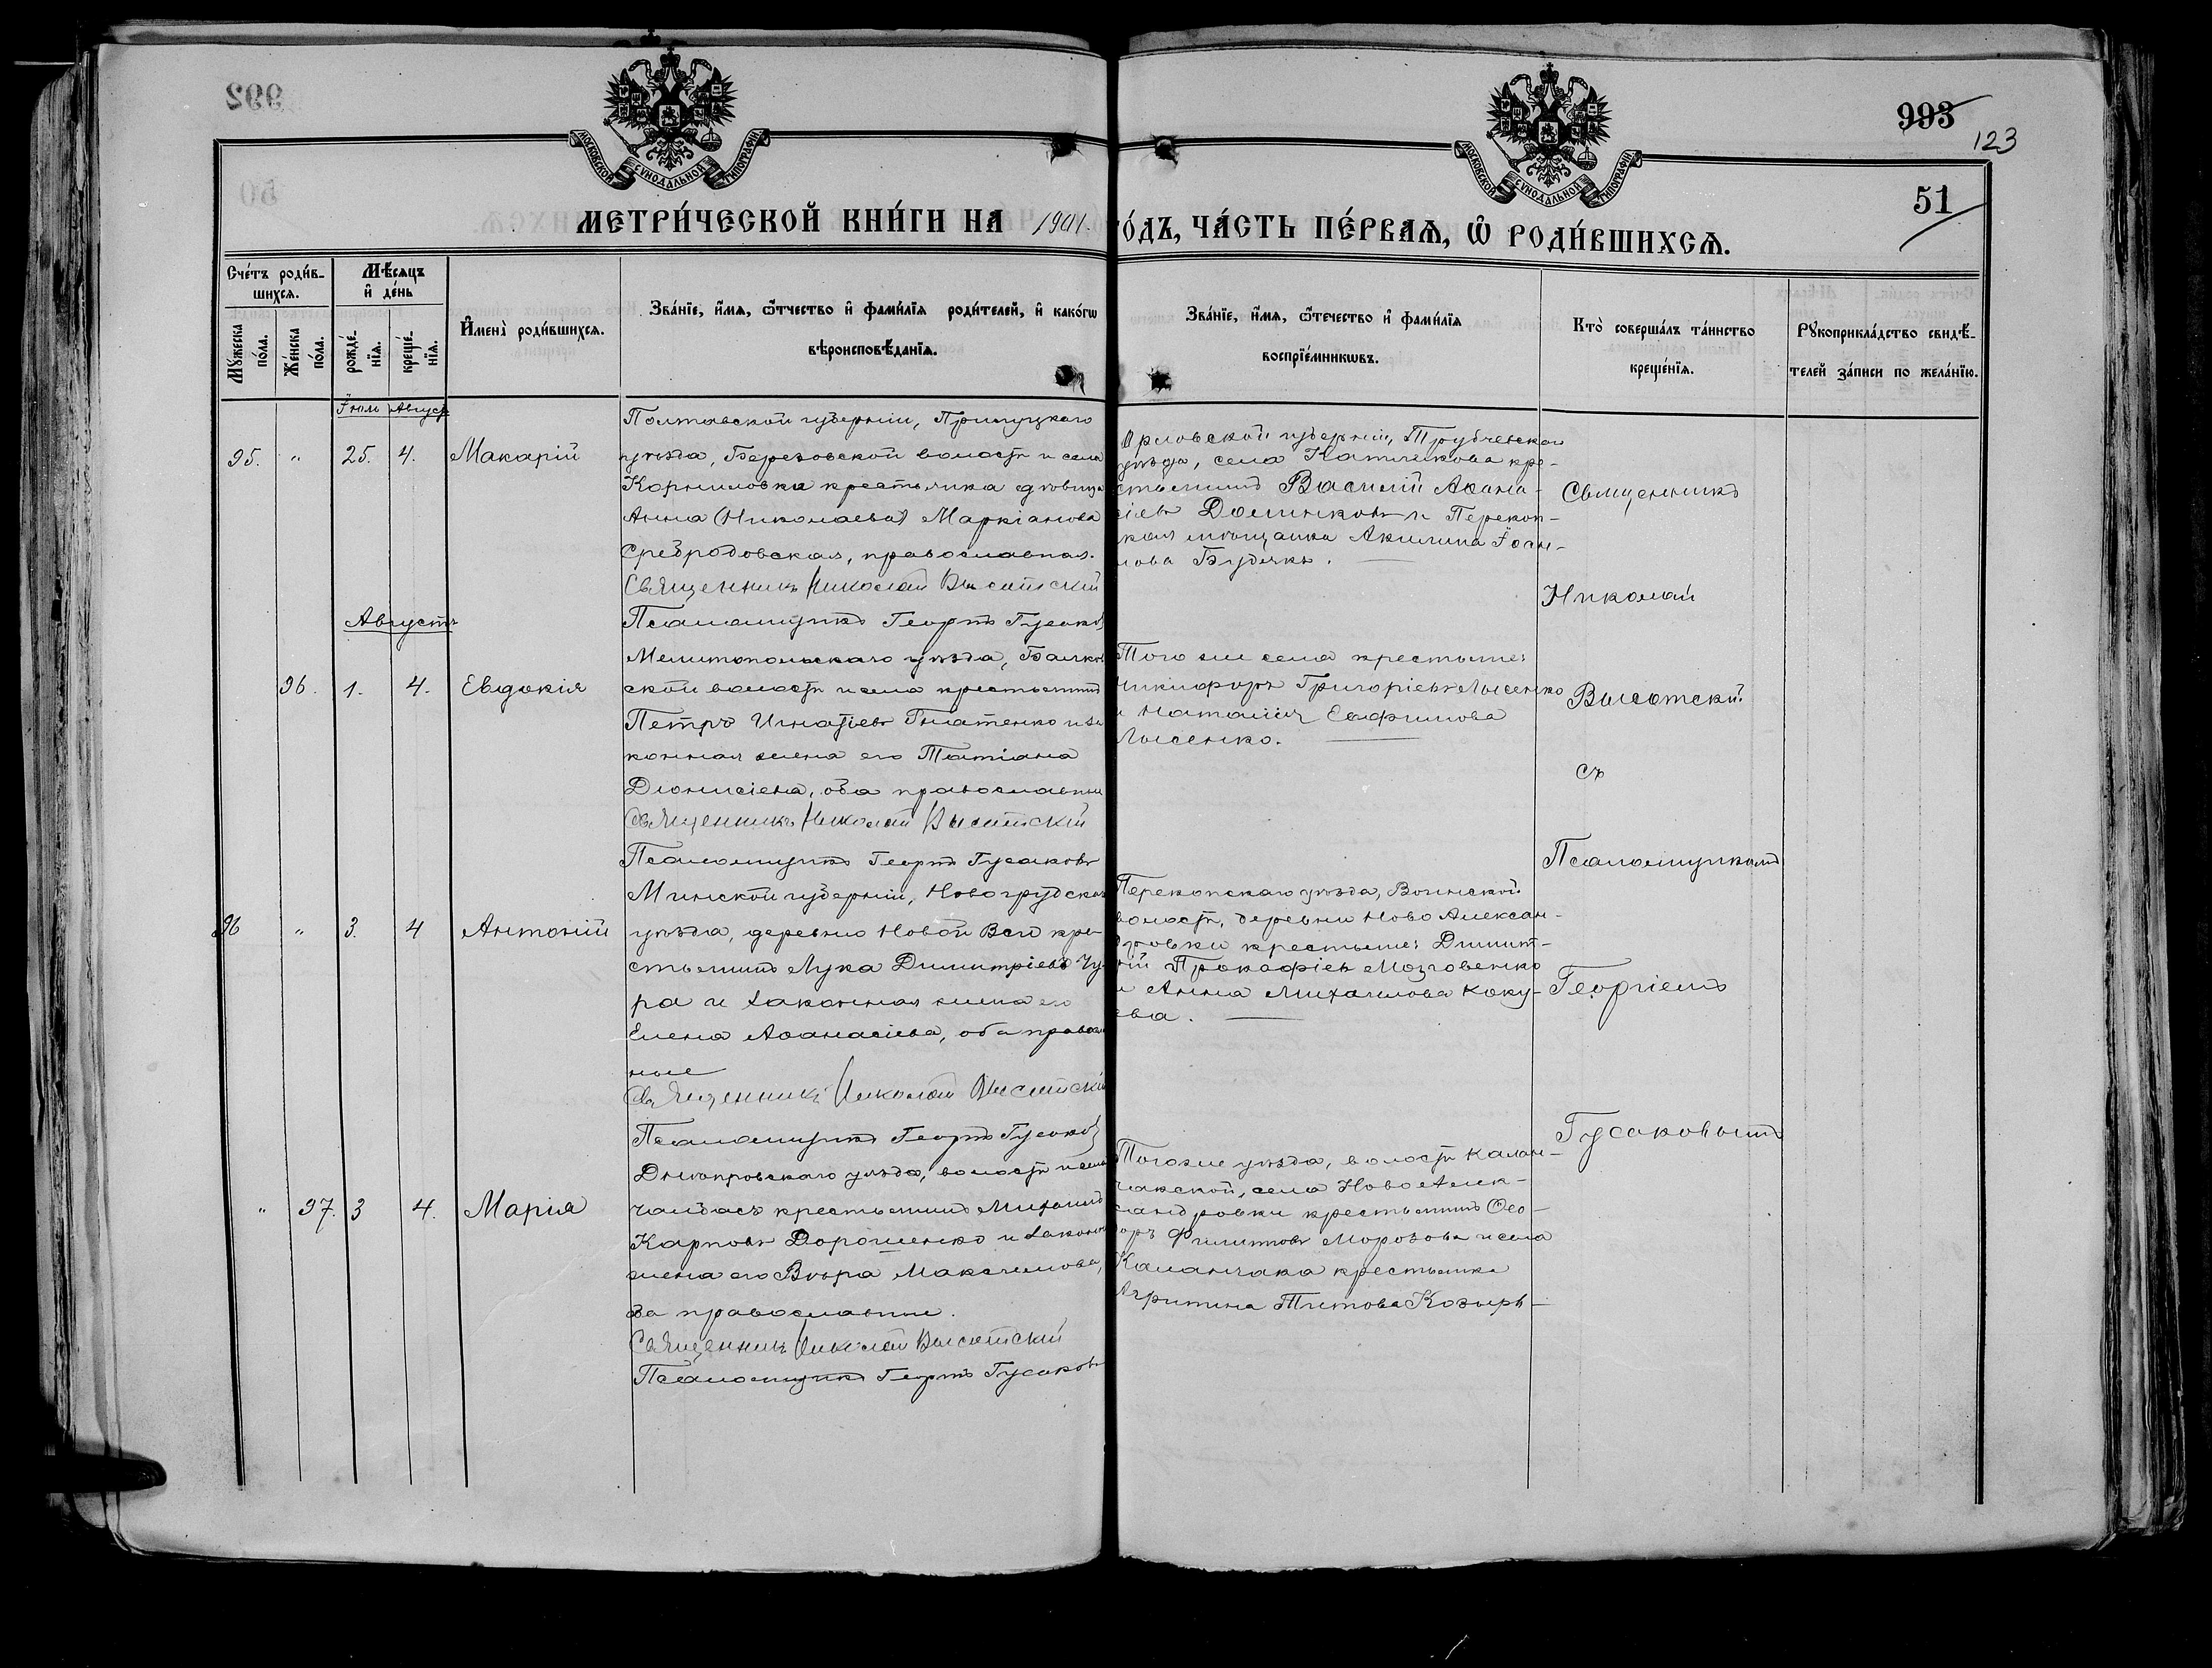 992
993
123
50
51
МОСКОВСКОЙ СѴНОДАЛЬНОЙ ТИПОГРАФІИ
МОСКОВСКОЙ СѴНОДАЛЬНОЙ ТИПОГРАФІИ
МЕТРИ́ЧЕСКОЙ КНИ́ГИ НА
ГО́ДЪ, ЧА́СТЬ ПЕ́РВАѦ, Ѡ҆ РОДИ́ВШИХСѦ.
Сче́тъ роди́в-
шихсѧ.
Мѣ́сѧцъ
и҆ де́нь
Мꙋ́жеска по́ла.
Же́нска по́ла.
рожде́-нїѧ.
креще́-нїѧ.
И҆мена̀ роди́вшихсѧ.
Зва́нїе, и҆́мѧ, ѻ҆́тчество и҆ фами́лїѧ роди́телей, и҆ како́гѡ
вѣроисповѣ́данїѧ.
Зва́нїе, и҆́мѧ, ѻ҆те́чество и҆ фами́лїѧ
воспрїе́мникѡвъ.
Кто̀ соверша́лъ та́инство
креще́нїѧ.
Рꙋкоприкла́дство свидѣ́-
телей за́писи по жела́нїю.
Іюль Август
95. " 25. 4. Макарій
Полтавской губерніи, Прилуцкаго
уѣзда, Березовской волости и села
Корниловка крестьянка дѣвица
Анна (Николаева) Маркіанова
Средродовская, православная.
Священникъ Николай Высотскій
Псаломщикъ Георгій Гусаковъ
Орловской губерніи, Трубчевскаго
уѣзда, села кре-
стьянинъ Василій Аѳана-
сіевъ и Перекоп-
ская мѣщанка Акилина Іоси-
пова
Августъ
96. 1. 4. Евдокія
Мелитопольскаго уѣзда, Балков
ской волости и села крестьянинъ
Петръ Игнатіевъ Гнатенко и за
конная жена его Татіана
Діонисіева, оба православные
Священникъ Николай Высотскій
Псаломщикъ Георгій Гусаковъ
Того же села крестьяне:
Никифоръ Григоріевъ Лысенко
и Наталія Евфимова
Лысенко.
96 " 3. 4 Антоній
Минской губерніи, Новогрудскаго
уѣзда, деревни Новой Вси кре-
стьянинъ Лука Димитріевъ Чу-
ра и законная жена его
Елена Аѳанасіева, оба православ
ные
Священникъ Николай Высотскій
Псаломщикъ Георгій Гусаковъ
Перекопскаго уѣзда, Воинской
волости, деревни Ново Алексан-
дровки крестьяне: Димит-
рій Прокофіевъ Мозговенко
и Анна Михаилова Коку-
ева.
" 97. 3 4. Марія
Днѣпровскаго уѣзда, волости и села
Чалбасъ крестьянинъ Михаилъ
Карповъ Дорошенко и законная
жена его Вѣра Максимова,
оба православные.
Священникъ Николай Высотскій
Псаломщикъ Георгій Гусаковъ
Того же уѣзда, волости Калан-
чакской, села Ново Алек-
сандровки крестьянинъ Ѳео-
доръ Филиповъ Морозовъ и села
Каланчака крестьянка
Агрипина Титова Козырь
Священникъ
Николай
Высотскій
съ
Псаломщикомъ
Георгіемъ
Гусаковымъ